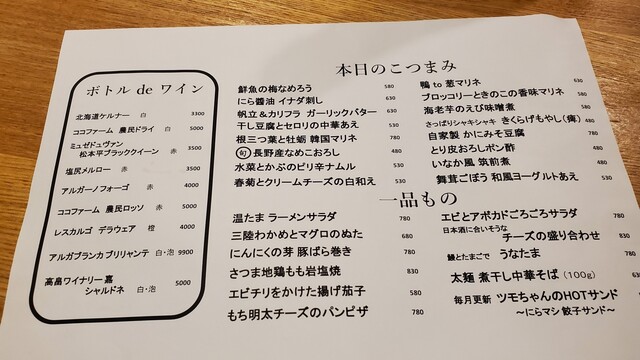 ボトル de ワイン
北海道ケルナー 白 3300
ココファーム 農民ドライ 白 5000
ミュゼドゥヴァン
松本平ブラッククイーン 赤 3500
塩尻メルロー 赤 3500
アルガーノフォーゴ 赤 4000
ココファーム 農民ロッソ 赤 5000
レスカルゴ デラウェア 橙 4000
アルガブランカ ブリリャンテ 白・泡 9900
高畠ワイナリー 嘉
シャルドネ 白・泡 5000
本日のこつまみ
鮮魚の梅なめろう 580
にら醤油 イナダ刺し 630
帆立&カリフラ ガーリックバター 630
干し豆腐とセロリの中華あえ 530
根三つ葉と牡蛎 韓国マリネ 780
旬 長野産なめこおろし 480
水菜とかぶのピリ辛ナムル 530
春菊とクリームチーズの白和え 530
鴨 to 葱マリネ 630
ブロッコリーときのこの香味マリネ 580
海老芋のえび味噌煮 580
さっぱりシャキシャキ きくらげもやし(痺) 480
自家製 かにみそ豆腐 780
とり皮おろしポン酢 480
いなか風 筑前煮 480
舞茸ごぼう 和風ヨーグルトあえ 530
一品もの
温たま ラーメンサラダ 780
三陸わかめとマグロのぬた 680
にんにくの芽 豚ばら巻き 780
さつま地鶏もも岩塩焼 830
エビチリをかけた揚げ茄子 580
もち明太チーズのパンピザ 780
エビとアボカドごろごろサラダ 780
日本酒に合いそうな
チーズの盛り合わせ 830
鰻とたまごで うなたま 780
太麺 煮干し中華そば (100g)
毎月更新 ツモちゃんのHOTサンド
~にらマシ 餃子サンド~